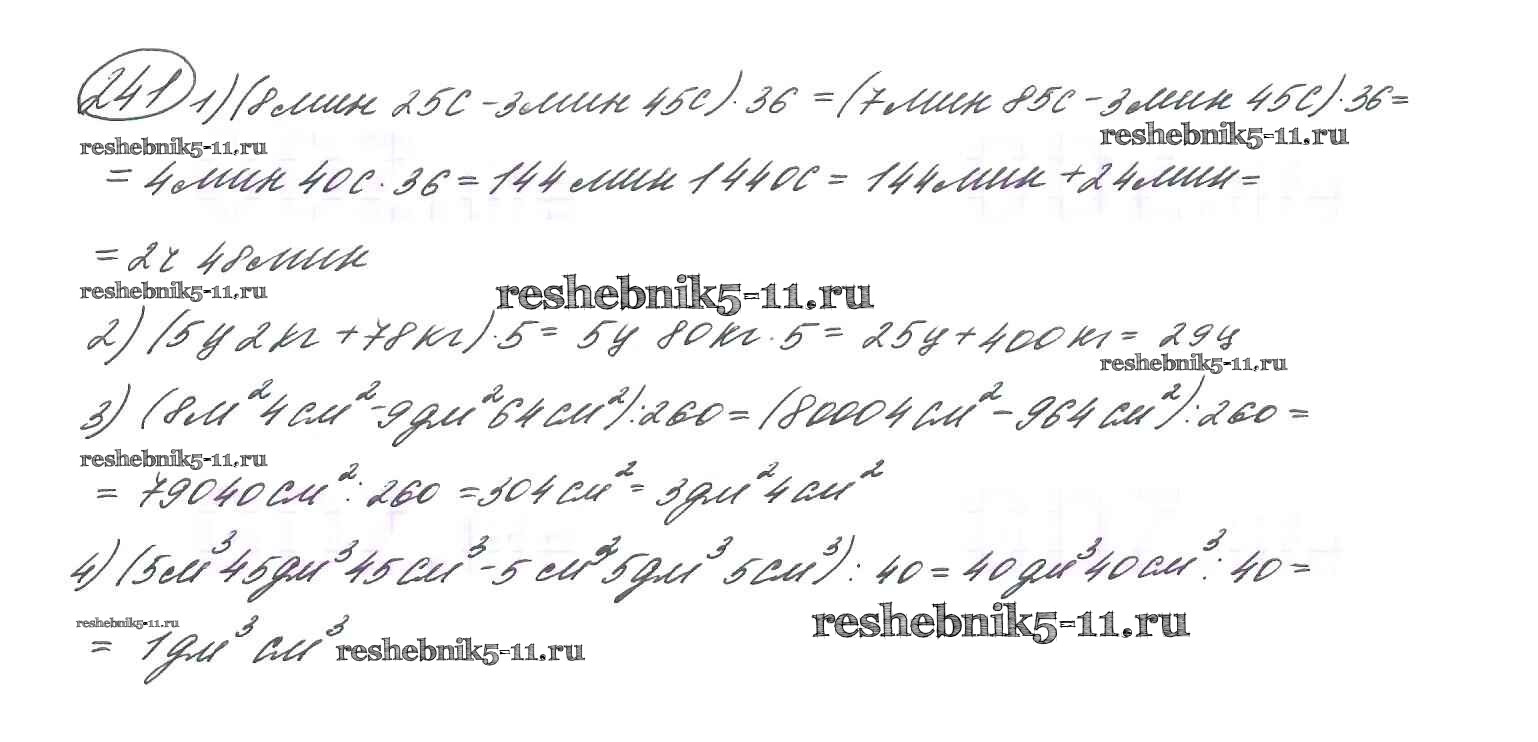 241 1) (8мин 25с - 3мин 45с) · 36 = (7мин 85с - 3мин 45с) · 36 =
reshebnik5-11.ru reshebnik5-11.ru
= 4мин 40с · 36 = 144мин 1440с = 144мин + 24мин =
= 2ч 48мин
reshebnik5-11.ru reshebnik5-11.ru
2) (5ц 2кг + 78кг) · 5 = 5ц 80кг · 5 = 25ц + 400кг = 29ц
reshebnik5-11.ru
3) (8м² 4см² - 9дм² 64см²) : 260 = (80004см² - 964см²) : 260 =
reshebnik5-11.ru
= 79040см² : 260 = 304см² = 3дм² 4см²
4) (5см³ 45дм³ 45см³ - 5см² 5дм³ 5см³) : 40 = 40дм³ 40см³ : 40 =
reshebnik5-11.ru reshebnik5-11.ru
= 1дм³ см³ reshebnik5-11.ru